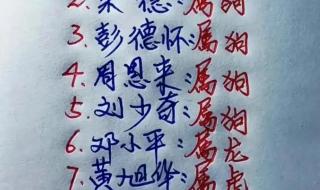 2. 朱德:属狗
3. 彭德怀:属狗
4. 周恩来:属狗
5. 刘少奇:属狗
6. 邓小平:属龙
7. 黄旭华:属虎